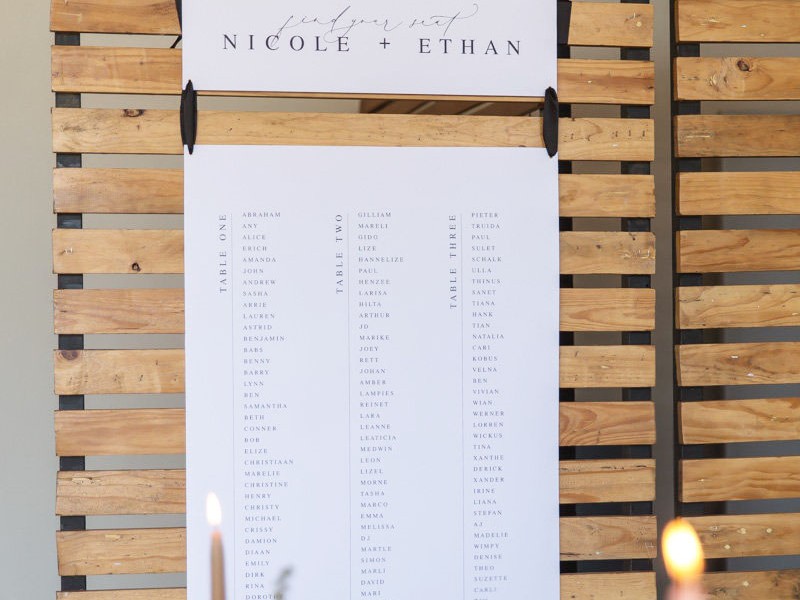 find your seat
NICOLE + ETHAN
TABLE ONE
ABRAHAM
ANY
ALICE
ERICH
AMANDA
JOHN
ANDREW
SASHA
ABRIE
LAUREN
ASTRID
BENJAMIN
BABS
BENNY
BARRY
LYNN
BEN
SAMANTHA
BETH
CONNER
BOB
ELIZE
CHRISTIAAN
MARELIE
CHRISTINE
HENRY
CHRISTY
MICHAEL
CRISSY
DAMION
DIAAN
EMILY
DIRK
RINA
DOROTHY
TABLE TWO
GILLIAM
MARELI
GIDO
LIZE
HANNELIZE
PAUL
HENZEE
LARISA
HILTA
ARTHUR
JD
MARIKE
JOEY
RETT
JOHAN
AMBER
LAMPIES
REINET
LARA
LEANNE
LEATICIA
MEDWIN
LEON
LIZEL
MORNE
TASHA
MARCO
EMMA
MELISSA
DJ
MARTLE
SIMON
MARLI
DAVID
MARI
TABLE THREE
PIETER
TRUIDA
PAUL
SULET
SCHALK
ULLA
THINUS
SANET
TIANA
HANK
TIAN
NATALIA
CARI
KOBUS
VELNA
BEN
VIVIAN
WIAN
WERNER
LORREN
WICKUS
TINA
XANTHE
DERICK
XANDER
IRINE
LIANA
STEFAN
AJ
MADELIE
WIMPY
DENISE
THEO
SUZETTE
CARLI